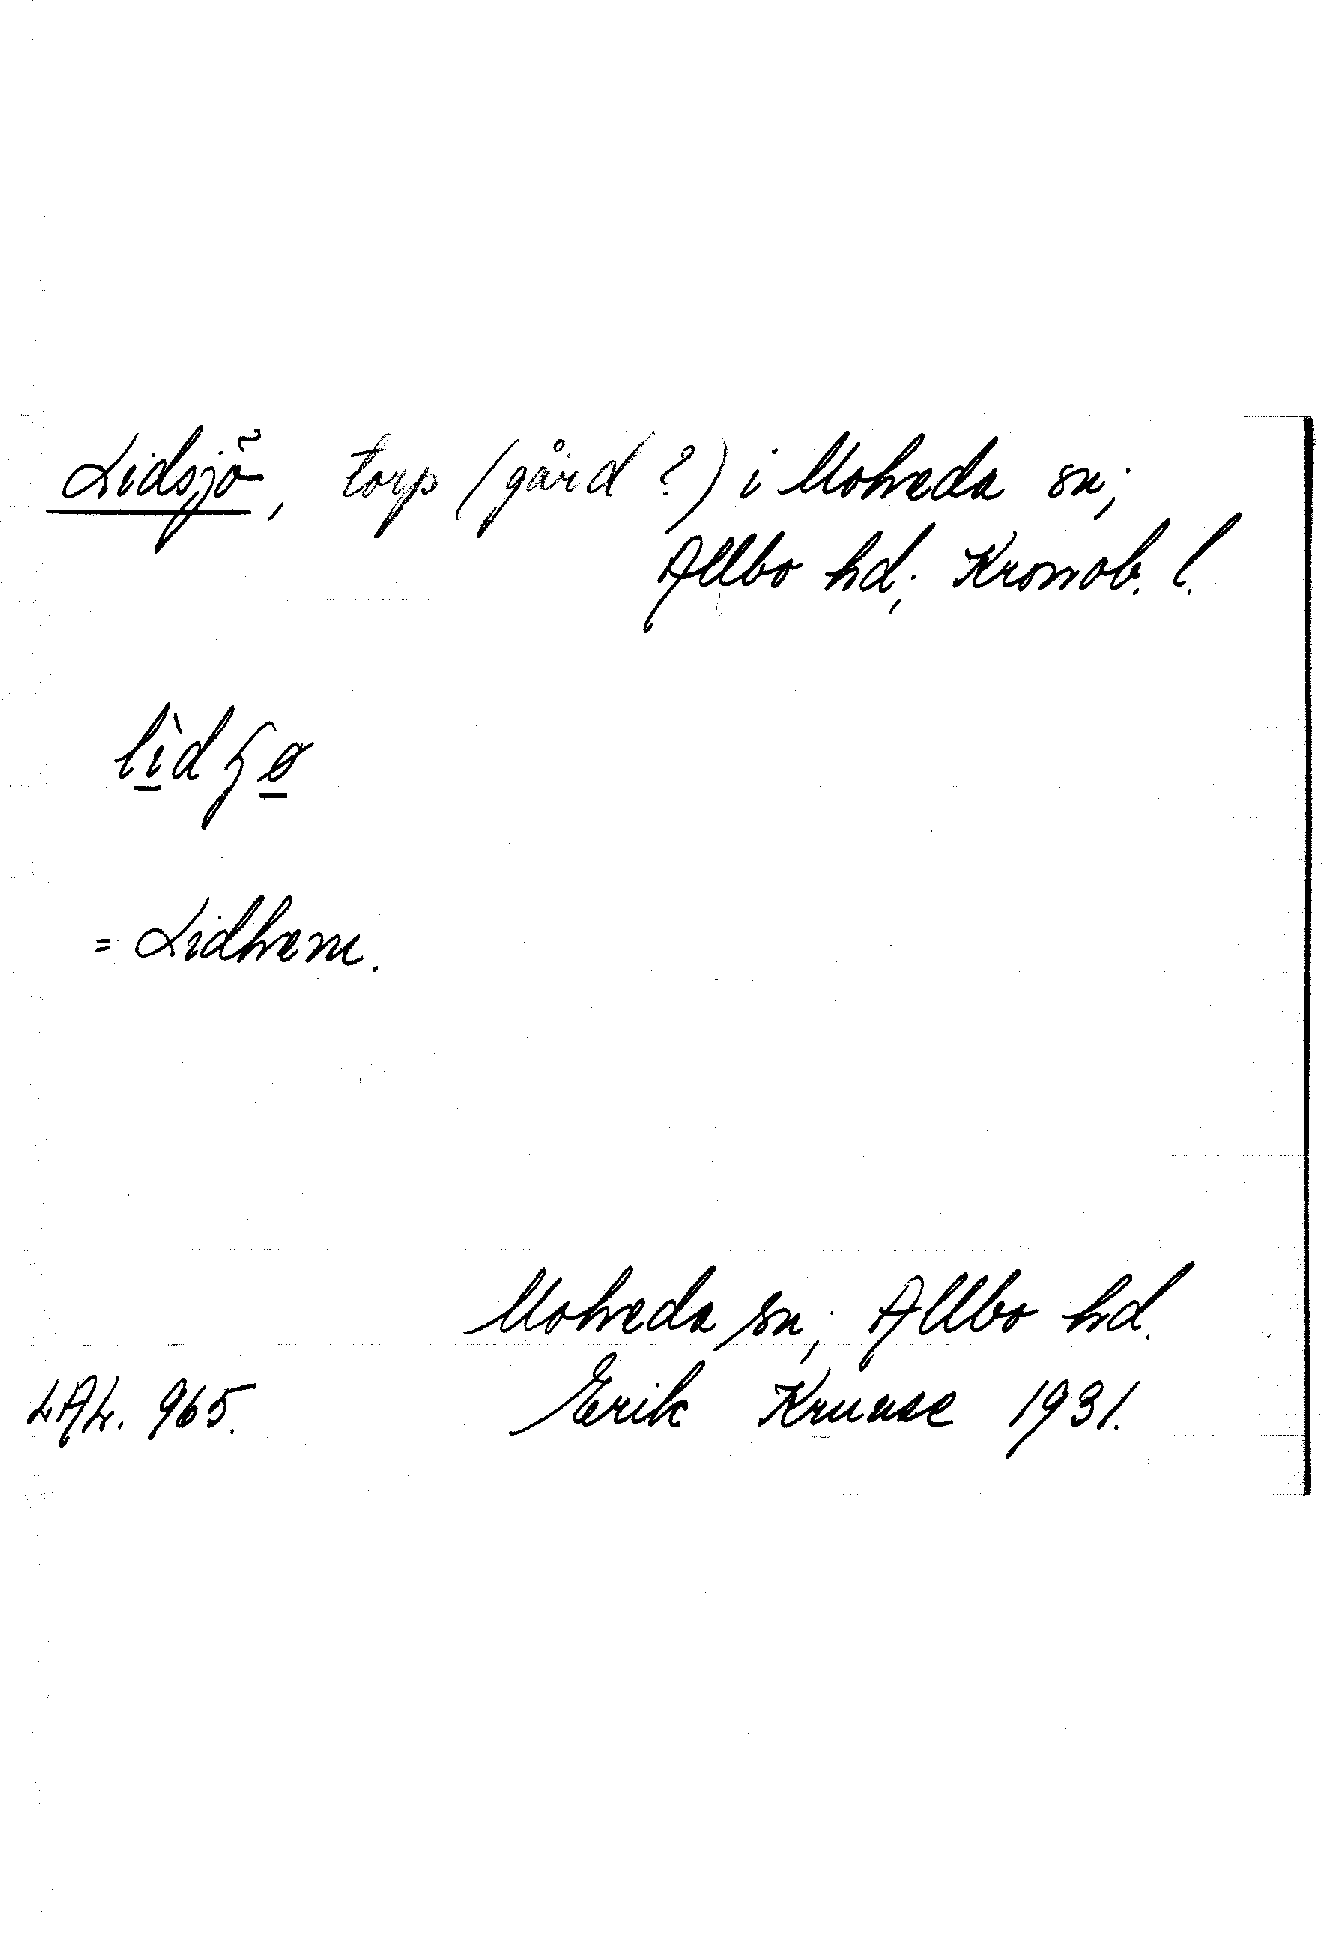 Lidsjö, torp (gård ?) i Moheda sn;
Allbo hd; Kronob. l.
lìdʒø
= Lidhem.
Moheda sn; Allbo hd.
LAL. 965.
Erik Kruuse 1931.